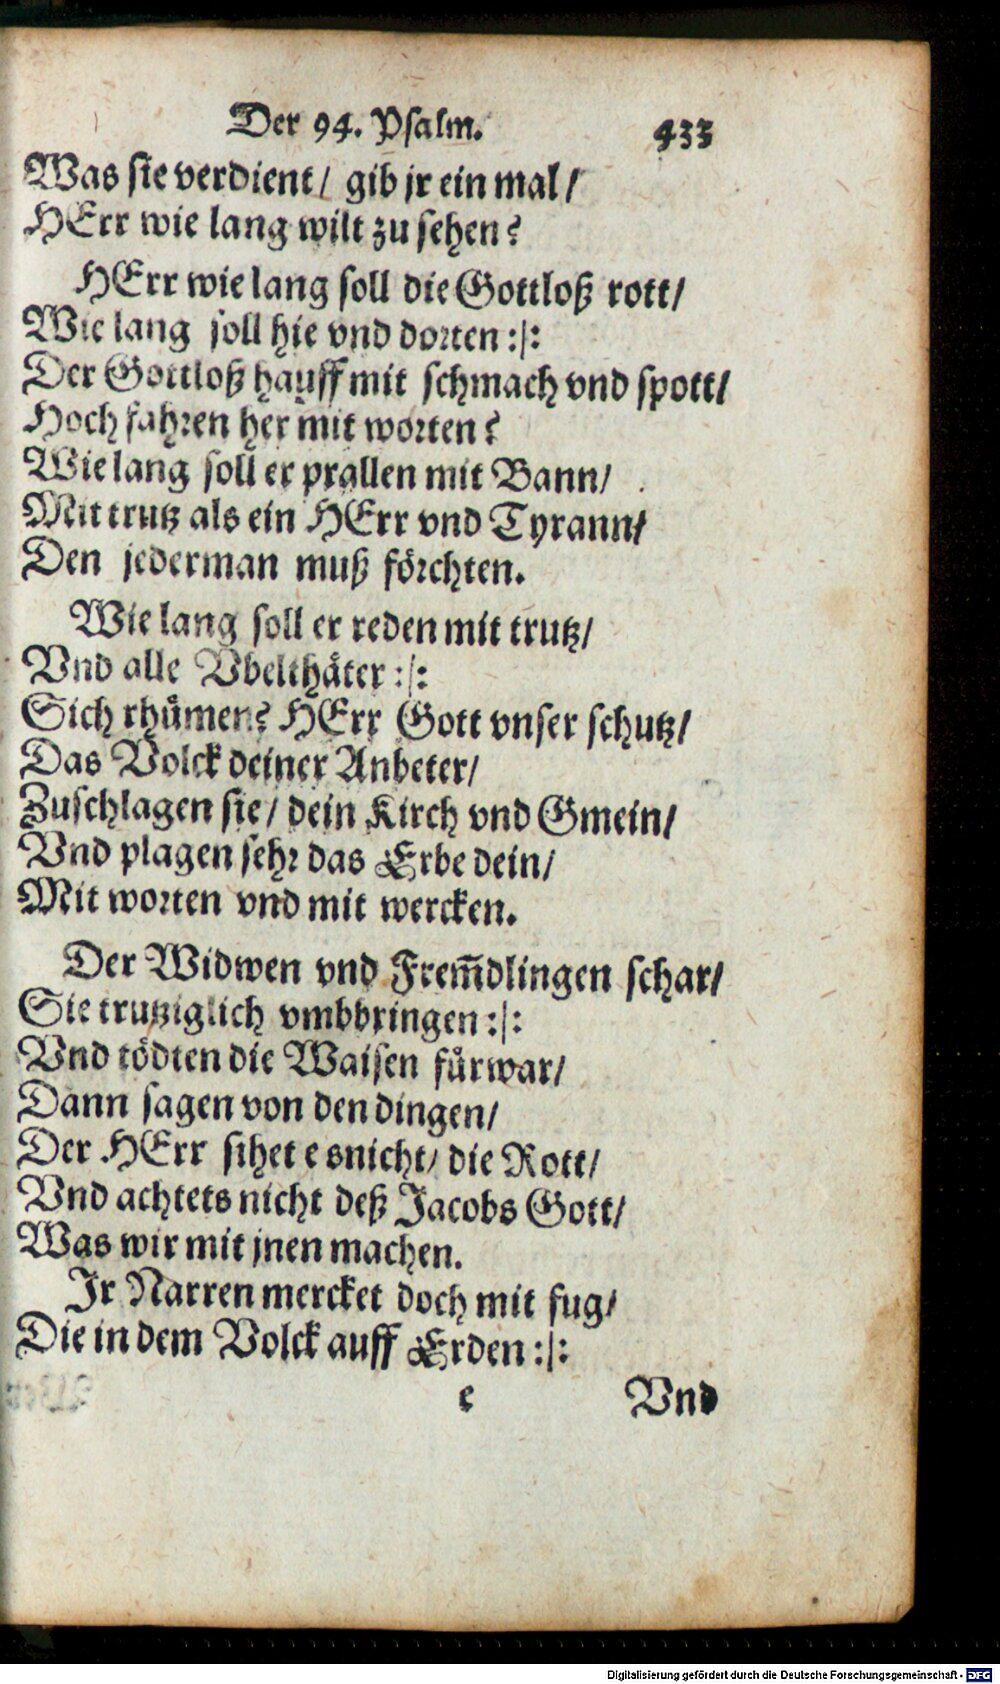 Der 94. Psalm. 433
Was sie verdient/ gib jr ein mal/
HErr wie lang wilt zu sehen?
HErr wie lang soll die Gottloß rott/
Wie lang soll hie vnd dorten :/:
Der Gottloß hauff mit schmach vnd spott/
Hoch fahren her mit worten?
Wie lang soll er prallen mit Bann/
Mit trutz als ein HErr vnd Tyrann/
Den jederman muß förchten.
Wie lang soll er reden mit trutz/
Vnd alle Vbelthäter :/:
Sich rhümen? HErr Gott vnser schutz/
Das Volck deiner Anbeter/
Zuschlagen sie/ dein Kirch vnd Gmein/
Vnd plagen sehr das Erbe dein/
Mit worten vnd mit wercken.
Der Widwen vnd Frem̃dlingen schar/
Sie trutziglich vmbbringen :/:
Vnd tödten die Waisen fürwar/
Dann sagen von den dingen/
Der HErr sihet e snicht/ die Rott/
Vnd achtets nicht deß Jacobs Gott/
Was wir mit jnen machen.
Jr Narren mercket doch mit fug/
Die in dem Volck auff Erden :/:
e Vnd
Digitalisierung gefördert durch die Deutsche Forschungsgemeinschaft - DFG